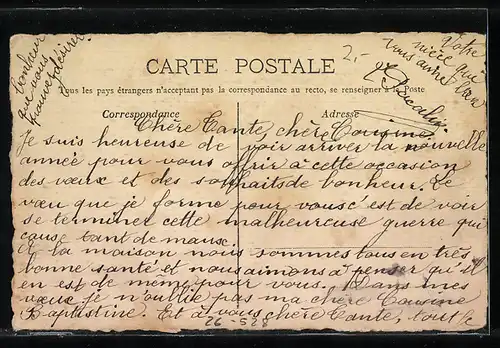 2,-
CARTE POSTALE
Tous les pays étrangers n'acceptant pas la correspondance au recto, se renseigner à la Poste
Correspondance
Adresse
Chère Tante, chère Cousine
Je suis heureuse de voir arriver la nouvelle
année pour vous offrir à cette occasion
des vœux et des souhaits de bonheur. Le
vœu que je forme pour vous c est de voir
se terminer cette malheureuse guerre qui
cause tant de maux.
A la maison nous sommes tous en très
bonne santé et nous aimons à penser qu'il
en est de même pour vous. Dans mes
vœux je n'oublie pas ma chère Cousine
Baptistine. Et à vous chère Tante, tout le
bonheur
que vous
pouvez désirer.
Votre
nièce qui
vous aime bien
26-528